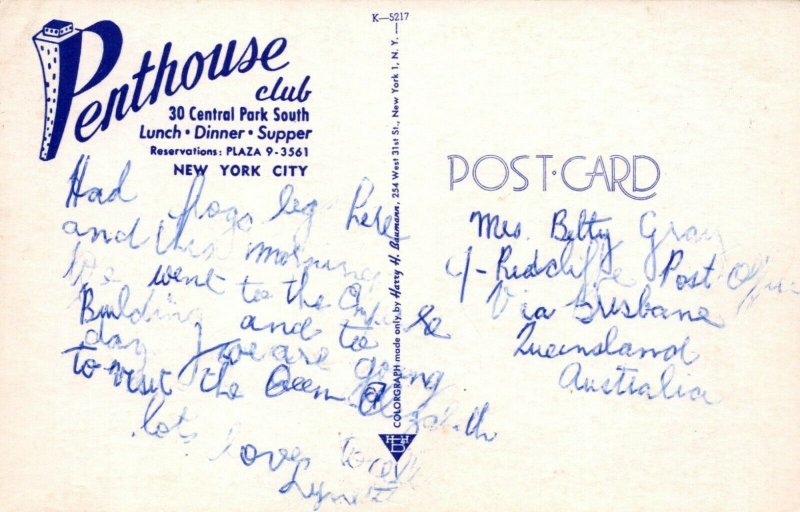 Penthouse
club
30 Central Park South
Lunch • Dinner • Supper
Reservations: PLAZA 9-3561
NEW YORK CITY
Had frogs legs here
and this morning
we went to the Empire
Building and to
day we are going
to visit the Queen Elizabeth
lots love to all
K—5217
COLORGRAPH made only by Harry H. Baumann, 254 West 31st St., New York 1, N. Y.
HHB
POST·CARD
Mrs. Betty Gray
C/- Redcliffe Post Office
Via Brisbane
Queensland
Australia